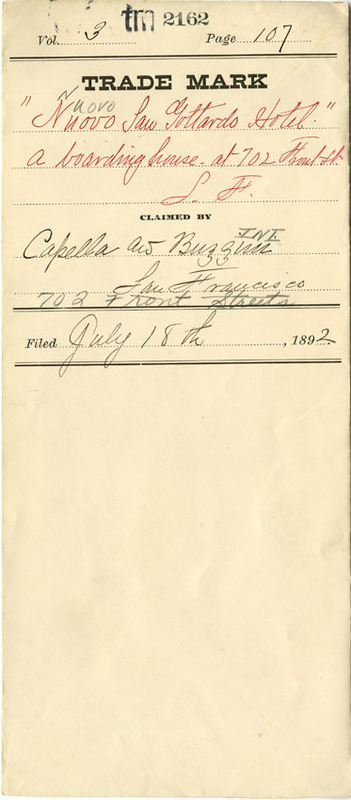 tm 2162
Vol. 3 Page 107
TRADE MARK
Nuovo
"Nuovo San Gottardo Hotel."
a boarding house. at 702 Front St.
S. F.
CLAIMED BY
Capella
San Francisco
702 Front Streets
Filed July 18th, 1892.